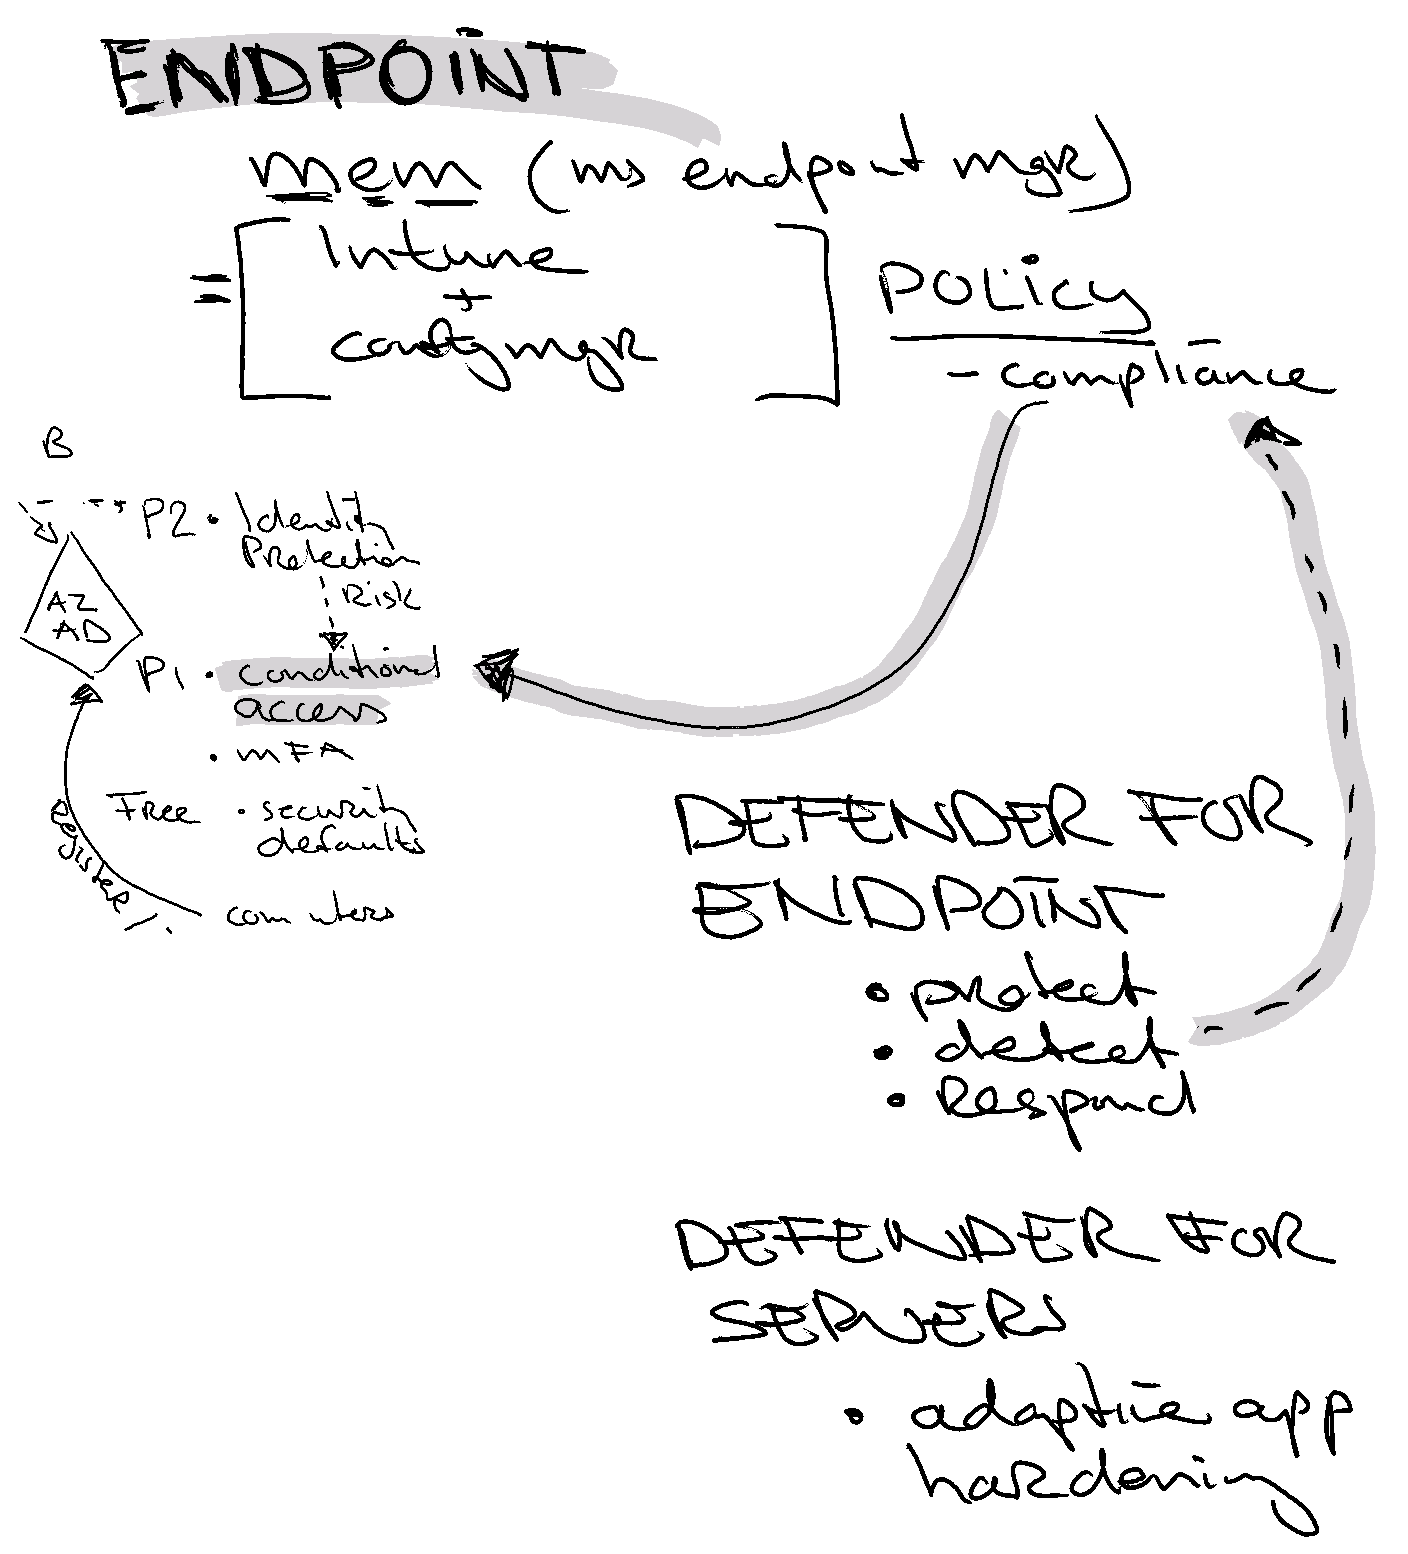 ENDPOINT
mem (ms endpoint mgr)
= [ Intune
+
configmgr ]
POLicy
- compliance
B
P2 • Identity
Protection
Risk
AZ
AD
P1 • conditional
access
• MFA
Free • security
defaults
register /.
com uters
DEFENDER FOR
ENDPOINT
• protect
• detect
• Respond
DEFENDER FOR
SERVERS
• adaptive app
hardening